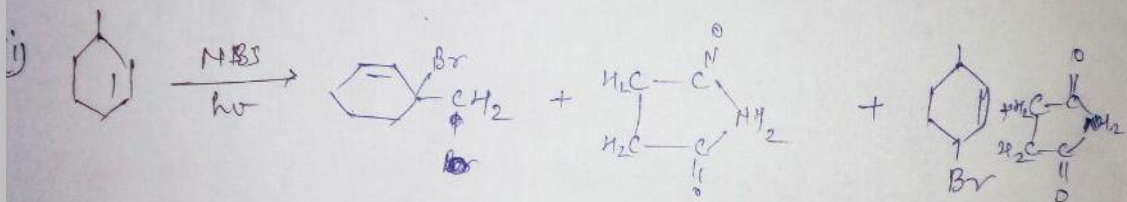 i)
NBS
hν
Br
CH2
+
O
H2C
C
NH2
H2C
C
O
+
Br
+
O
H2C
C
NH2
H2C
C
O